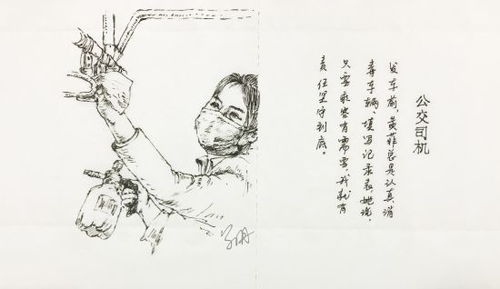 公交司机
发车前，黄菲总是认真消
毒车辆、填写记录表她说，
只要乘客有需要我就有
责任坚守到底。